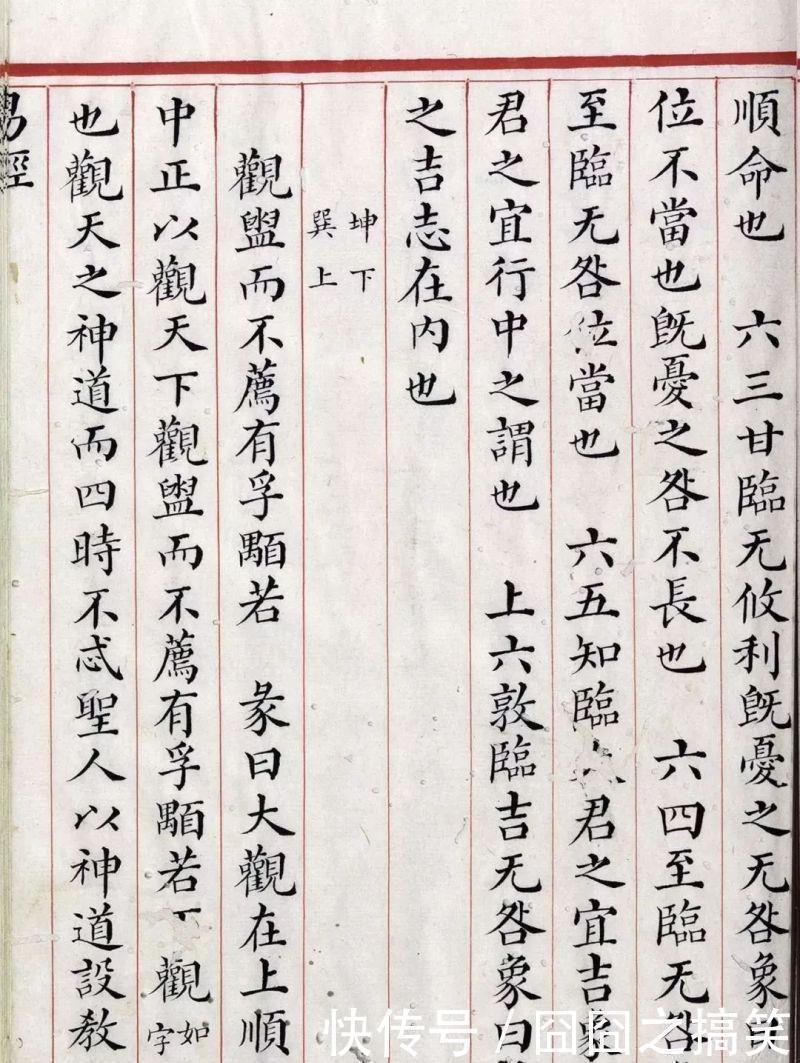 順命也　六三甘臨无攸利既憂之无咎象曰
位不當也既憂之咎不長也　六四至臨无咎
至臨无咎位當也　六五知臨君之宜吉象
君之宜行中之謂也　上六敦臨吉无咎象曰
之吉志在內也
坤下
巽上
觀盥而不薦有孚顒若　彖曰大觀在上順
中正以觀天下觀盥而不薦有孚顒若觀如字
也觀天之神道而四時不忒聖人以神道設教
易經
快传号 / 囧囧之搞笑